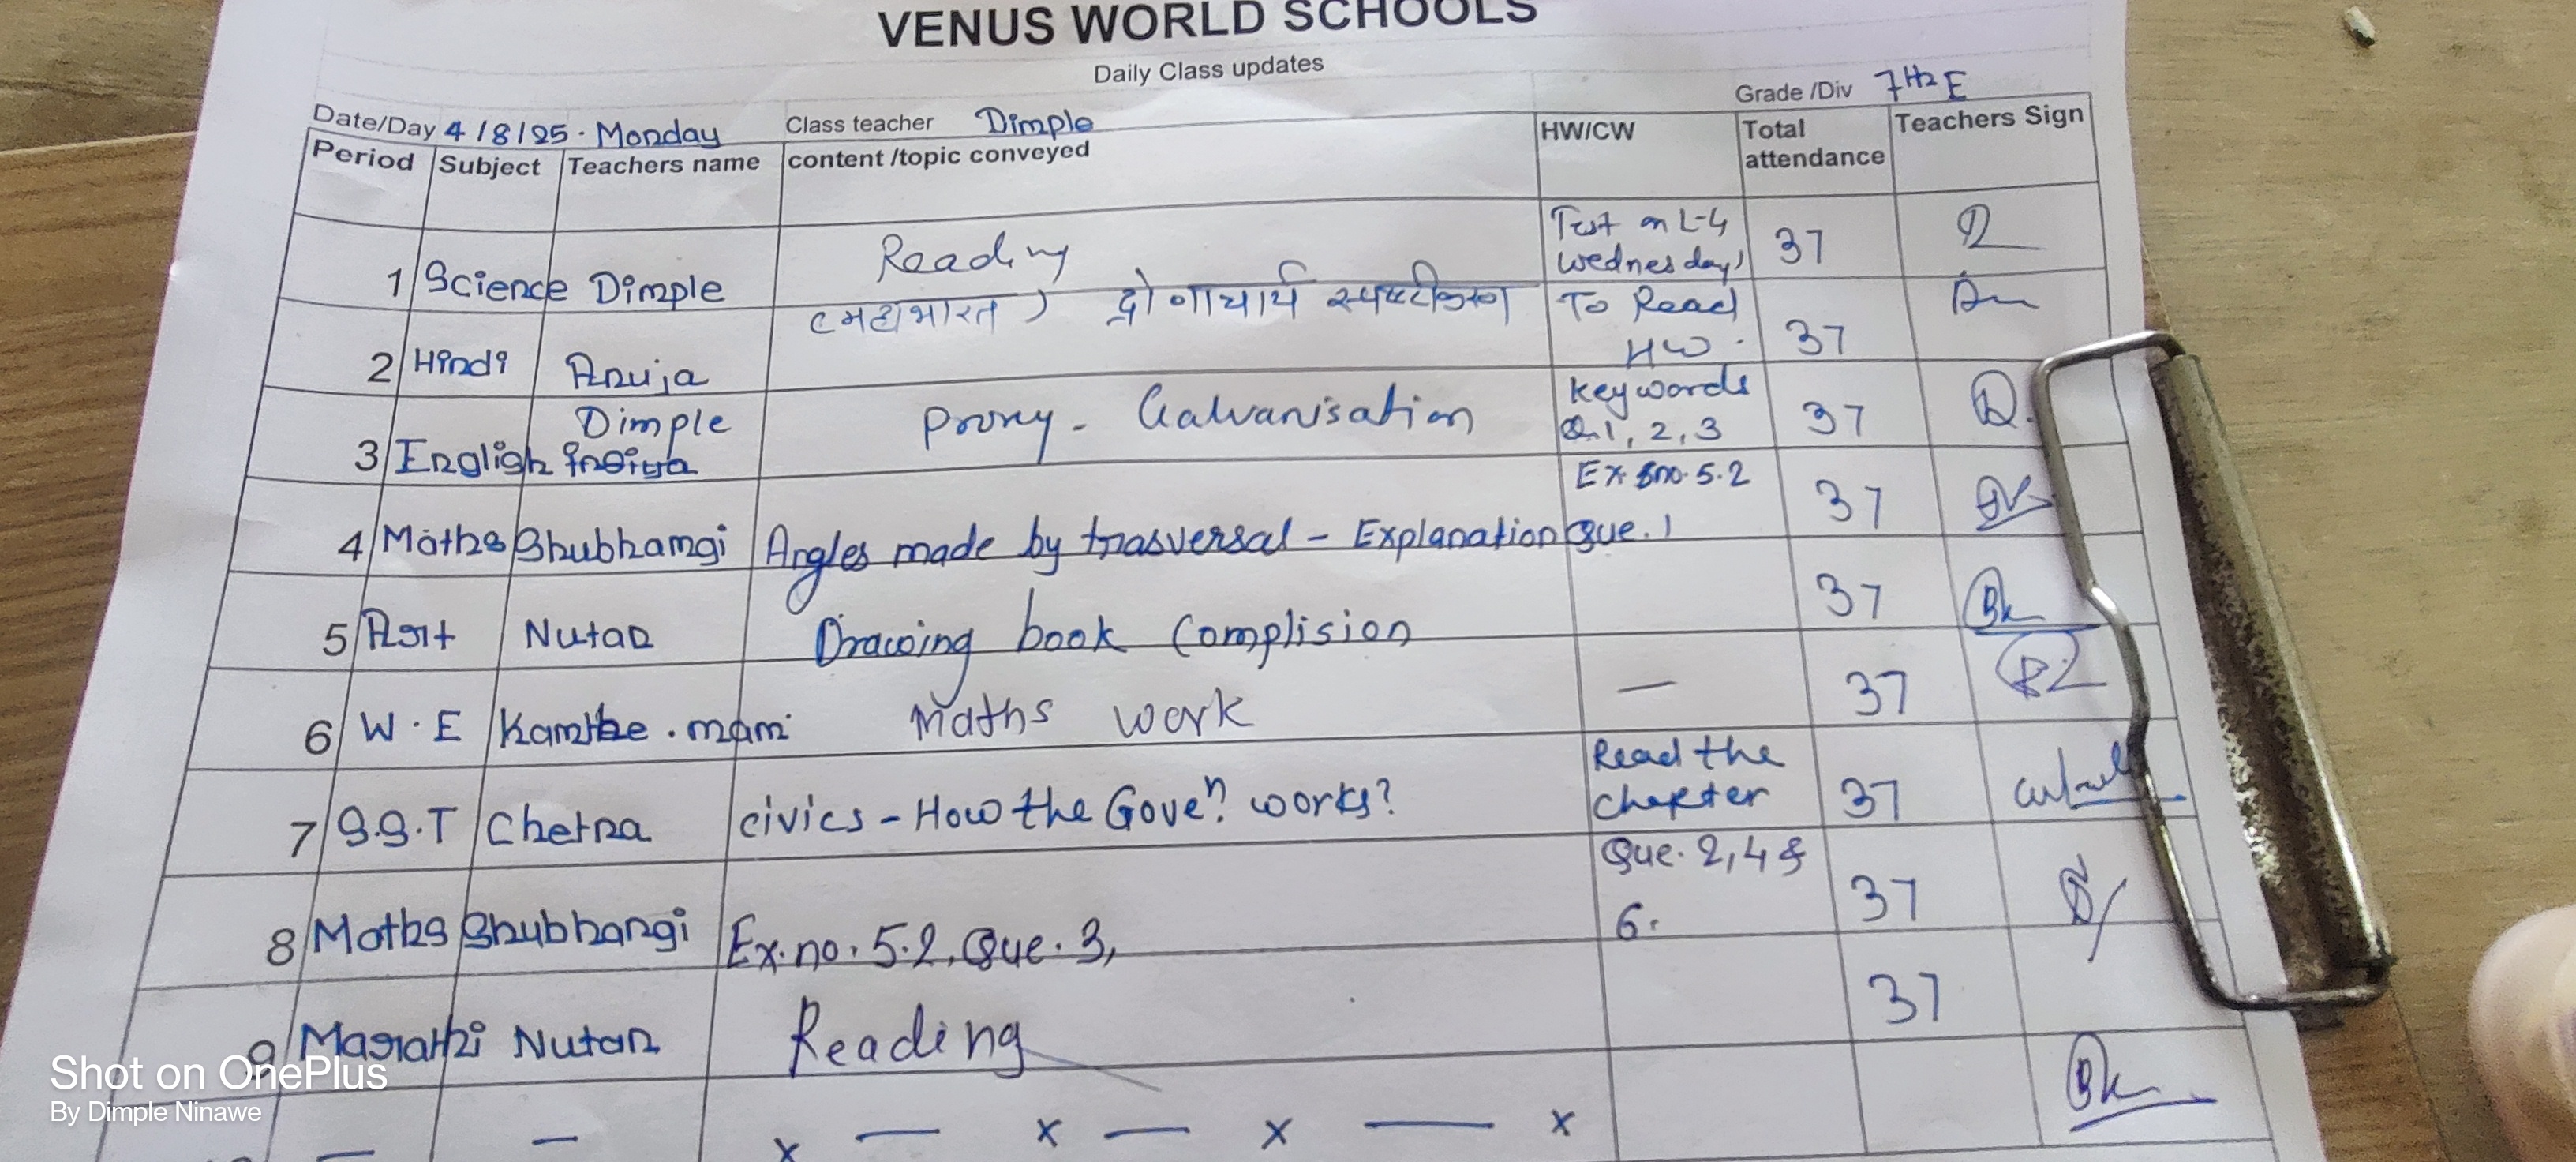 VENUS WORLD SCHOOLS
Daily Class updates
Grade /Div 7th E
Date/Day 4/8/25. Monday Class teacher Dimple
Period Subject Teachers name content /topic conveyed HW/CW Total attendance Teachers Sign
1 Science Dimple Reading Test on L-4 Wednesday) 37
2 Hindi Anuja (महाभारत) द्रोणाचार्य स्पष्टीकरण To Read HW. 37
3 English Dimple Proxy - Galvanisation keywords Q.1, 2, 3 37
4 Maths Shubhamgi Angles made by trasversal - Explanation Ex no. 5.2 Que. 1 37
5 Art Nutan Drawing book Complision 37
6 W.E Kamble. mam Maths work — 37
7 S.S.T Chetna civics - How the Goven. works? Read the Chapter 37
8 Maths Shubhangi Ex. no. 5.2, Que. 3, Que. 2, 4 & 6. 37
9 Marathi Nutan Reading 37
— — x — x — x — x
Shot on OnePlus
By Dimple Ninawe